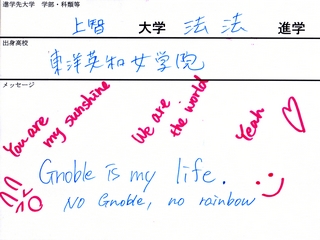 進学先大学 学部・科類等
上智 大学 法 法 進学
出身高校
東洋英和女学院
メッセージ
You are my sunshine
We are the world
Yeah
Gnoble is my life.
No Gnoble, no rainbow